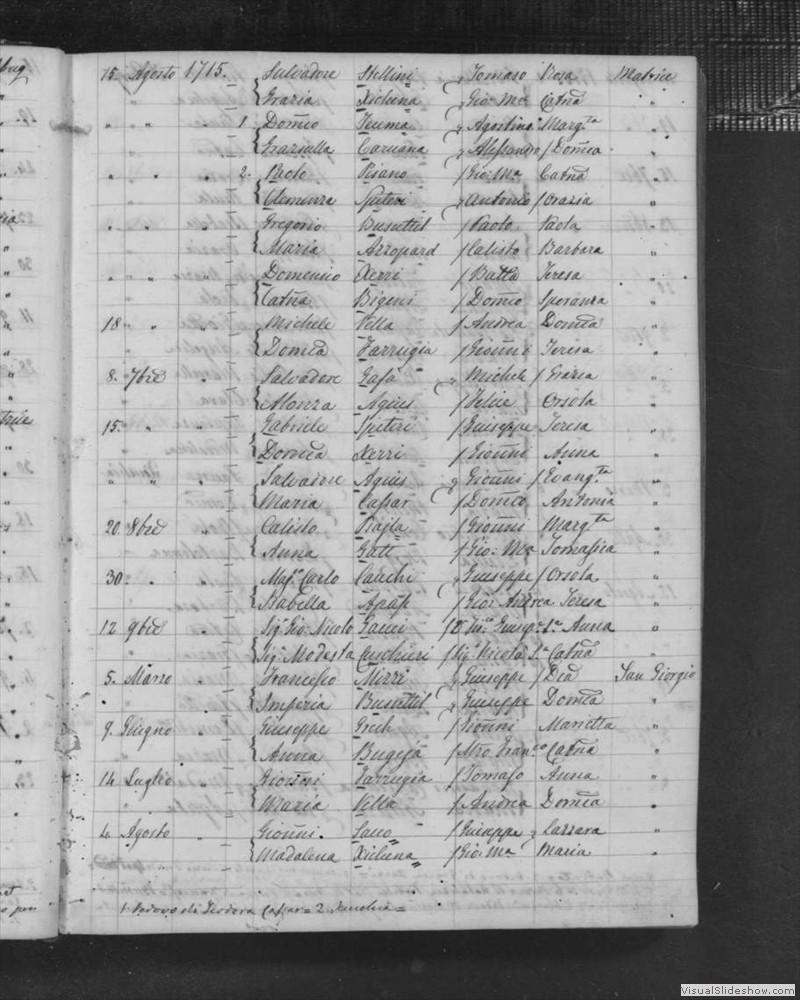 15. Agosto 1715. Salvadore Stellini Tomaso Rosa Matrice
Grazia Xicluna Gio: Ma Catña "
" " " 1. Domco Teuma Agostino Margta "
Graziulla Caruana Alessandro / Domca "
" " " 2. Paolo Pisano / Gio: Ma Catña "
Clemenza Spiteri Antonio / Grazia "
" " " Gregorio Busuttil / Paolo Paola "
Maria Azzopard / Calisto Barbara "
" " " Domenico Xerri / Batta Teresa "
Catña Bigeni / Domco Speranza "
18 " " Michele Vella / Andrea Domca "
Domca Farrugia / Gioñni Teresa "
8. 7bre " Salvadore Zafa Michele / Grazia "
Alonza Agius / Felice Orsola "
15. " " Gabriele Spiteri / Giuseppe Teresa "
Domca Xerri / Gioñni Anna "
" " " Salvadore Agius Gioñni / Evangta "
Maria Cassar / Domco Antonia "
20. 8bre " Calisto Gioñni Margta "
Anna Gatt / Gio: Ma Tomasica "
30. " " Carlo Giuseppe / Orsola "
Isabella Apap / Gio: Andrea Teresa "
12 9bre " Sigr Gio: Nicolo Gauci Anna "
Sigra Modesta Cuschieri / Sigr Nicola Sa Catña "
5. Marzo " Francesco Mizzi Giuseppe / Dia San Giorgio
Imperia Busuttil Giuseppe Domca "
9. Giugno " Giuseppe Grech / Gioñni Marietta "
Anna Bugeja / Mro Franco Catña "
14. Luglio " Gioñni Farrugia / Tomaso Anna "
Maria Vella / Andrea Domca "
4. Agosto " Gioñni. / Giuseppe Lazzara "
Madalena Xicluna / Gio: Ma Maria "
1. Vedovo di Teodora Cassar = 2.
VisualSlideshow.com